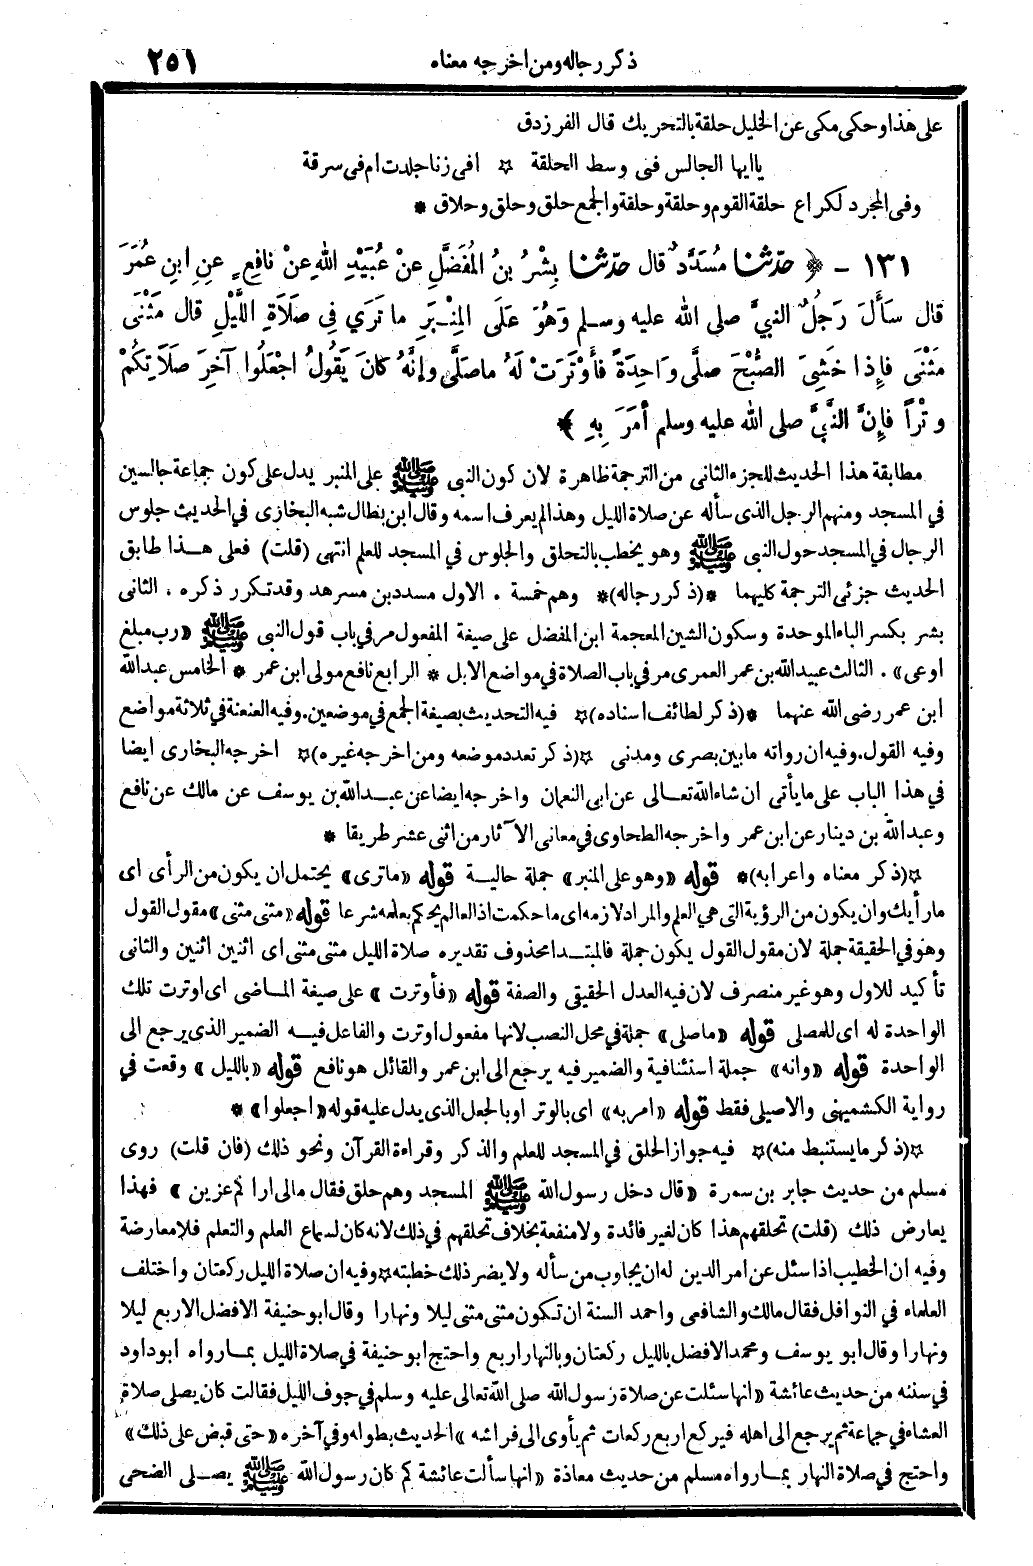 ذكر رجاله ومن اخرجه معناه ٢٥١
على هذا وحكى مكى عن الخليل حلقة بالتحريك قال الفرزدق
يا ايها الجالس فى وسط الحلقة ☆ افى زنا جلدت ام فى سرقة
وفى المجرد لكراع حلقة القوم وحلقة وحلقة والجمع حلق وحلق وحلاق *
١٣١ - ﴿ حدّثنا مُسَدَّدٌ قال حدّثنا بِشْرُ بنُ المُفَضَّلِ عنْ عُبَيْدِ اللهِ عنْ نافِعٍ عنِ ابنِ عُمَرَ
قال سَأَلَ رَجُلٌ النبيَّ صلى الله عليه وسلم وَهُوَ عَلَى المِنْبَرِ ما تَرَي فِى صَلَاةِ اللَّيْلِ قال مَثْنَى
مَثْنَى فاِذا خَشِيَ الصُّبْحَ صلَّى وَاحِدَةً فأَوْتَرَتْ لَهُ ما صَلَّى وإنَّهُ كانَ يَقُولُ اجْعَلُوا آخِرَ صَلَاتِكُمْ
وتْراً فإِنَّ النَّبِيَّ صلى الله عليه وسلم أمَرَ بِهِ ﴾
مطابقة هذا الحديث للجزء الثانى من الترجمة ظاهرة لان كون النبى ﷺ على المنبر يدل على كون جماعة جالسين
في المسجد ومنهم الرجل الذى سأله عن صلاة الليل وهذا لم يعرف اسمه وقال ابن بطال شبه البخارى في الحديث جلوس
الرجال في المسجد حول النبى ﷺ وهو يخطب بالتحلق والجلوس في المسجد للعلم انتهى (قلت) فعلى هذا طابق
الحديث جزئى الترجمة كليهما *(ذكر رجاله)* وهم خمسة . الاول مسدد بن مسرهد وقد تكرر ذكره . الثانى
بشر بكسر الباء الموحدة وسكون الشين المعجمة ابن المفضل على صيغة المفعول مر في باب قول النبى ﷺ «رب مبلغ
اوعى» . الثالث عبيد الله بن عمر العمرى مر في باب الصلاة في مواضع الابل * الرابع نافع مولى ابن عمر * الخامس عبد الله
ابن عمر رضى الله عنهما *(ذكر لطائف اسناده)☆ فيه التحديث بصيغة الجمع في موضعين . وفيه العنعنة في ثلاثة مواضع
وفيه القول . وفيه ان رواته ما بين بصرى ومدنى ☆(ذكر تعدد موضعه ومن اخرجه غيره)☆ اخرجه البخارى ايضا
في هذا الباب على ما يأتى ان شاء الله تعالى عن ابى النعمان واخرجه ايضا عن عبد الله بن يوسف عن مالك عن نافع
وعبد الله بن دينار عن ابن عمر واخرجه الطحاوى في معانى الآثار من اثنى عشر طريقا *
☆(ذكر معناه واعرابه)* قوله «وهو على المنبر» جملة حالية قوله «ما ترى» يحتمل ان يكون من الرأى اى
ما رأيك وان يكون من الرؤية التى هي العلم والمراد لازمه اى ما حكمت اذ العالم يحكم بعلمه شرعا قوله «مثنى مثنى» مقول القول
وهو في الحقيقة جملة لان مقول القول يكون جملة فالمبتدا محذوف تقديره صلاة الليل مثنى مثنى اى اثنين اثنين والثانى
تأكيد للاول وهو غير منصرف لان فيه العدل الحقيقى والصفة قوله «فأوترت» على صيغة الماضى اى اوترت تلك
الواحدة له اى للمصلى قوله «ما صلى» جملة في محل النصب لانها مفعول اوترت والفاعل فيه الضمير الذى يرجع الى
الواحدة قوله «وانه» جملة استئنافية والضمير فيه يرجع الى ابن عمر والقائل هو نافع قوله «بالليل» وقعت في
رواية الكشميهنى والاصيلى فقط قوله «امر به» اى بالوتر او بالجعل الذى يدل عليه قوله «اجعلوا» *
☆(ذكر ما يستنبط منه)☆ فيه جواز الحلق في المسجد للعلم والذكر وقراءة القرآن ونحو ذلك (فان قلت) روى
مسلم من حديث جابر بن سمرة «قال دخل رسول الله ﷺ المسجد وهم حلق فقال مالى اراكم عزين» فهذا
يعارض ذلك (قلت) تحلقهم هذا كان لغير فائدة ولا منفعة بخلاف تحلقهم في ذلك لانه كان لسماع العلم والتعلم فلا معارضة
وفيه ان الخطيب اذا سئل عن امر الدين له ان يجاوب من سأله ولا يضر ذلك خطبته ☆ وفيه ان صلاة الليل ركعتان واختلف
العلماء في النوافل فقال مالك والشافعى واحمد السنة ان تكون مثنى مثنى ليلا ونهارا وقال ابو حنيفة الافضل الاربع ليلا
ونهارا وقال ابو يوسف ومحمد الافضل بالليل ركعتان وبالنهار اربع واحتج ابو حنيفة في صلاة الليل بما رواه ابو داود
في سننه من حديث عائشة «انها سئلت عن صلاة رسول الله صلى الله تعالى عليه وسلم في جوف الليل فقالت كان يصلى صلاة
العشاء في جماعة ثم يرجع الى اهله فيركع اربع ركعات ثم يأوى الى فراشه» الحديث بطوله وفي آخره «حتى قبض على ذلك»
واحتج في صلاة النهار بما رواه مسلم من حديث معاذة «انها سألت عائشة كم كان رسول الله ﷺ يصلى الضحى